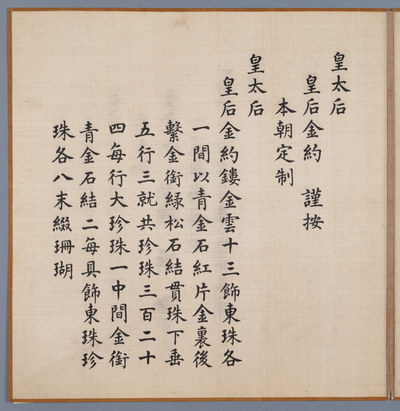 皇太后
皇后金約　謹按
本朝定制
皇太后
皇后金約鏤金雲十三飾東珠各
一間以青金石紅片金裏後
繫金銜綠松石結貫珠下垂
五行三就共珍珠三百二十
四每行大珍珠一中間金銜
青金石結二每具飾東珠珍
珠各八末綴珊瑚